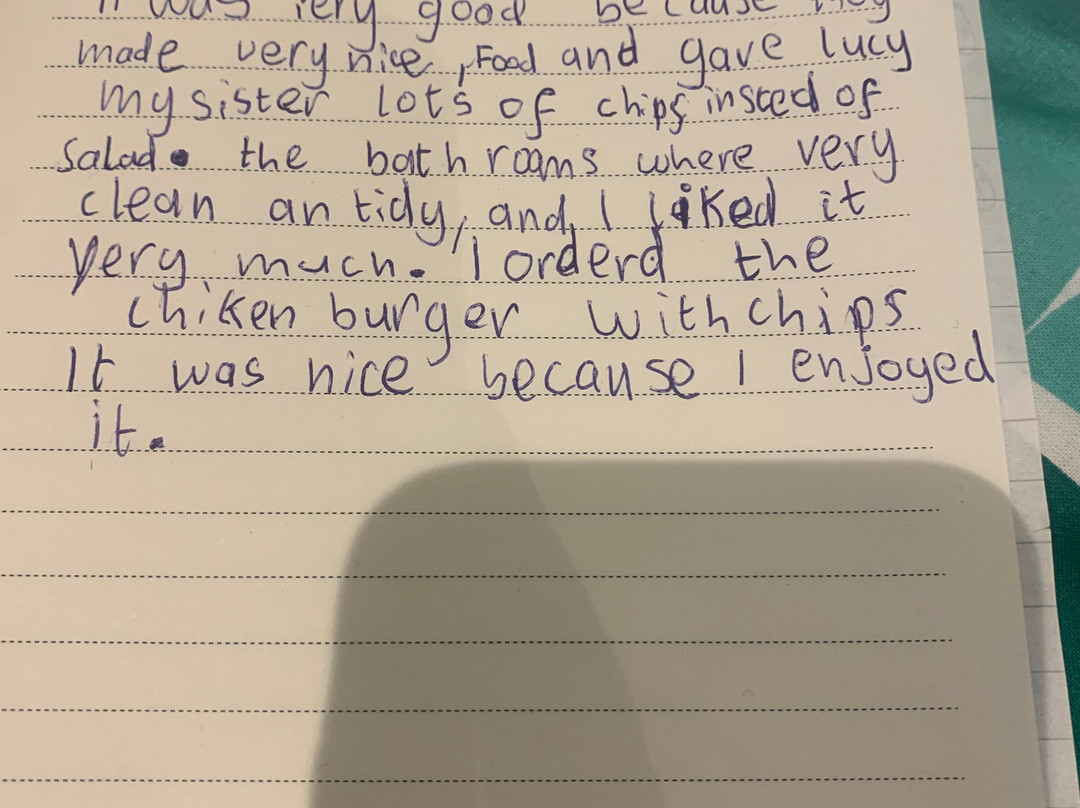 It was very good because they
made very nice, Food and gave lucy
my sister lots of chips insted of
Salad. the bathrooms where very
clean an tidy, and, I liked it
very much. I orderd the
chiken burger with chips
It was nice because I enjoyed
it.